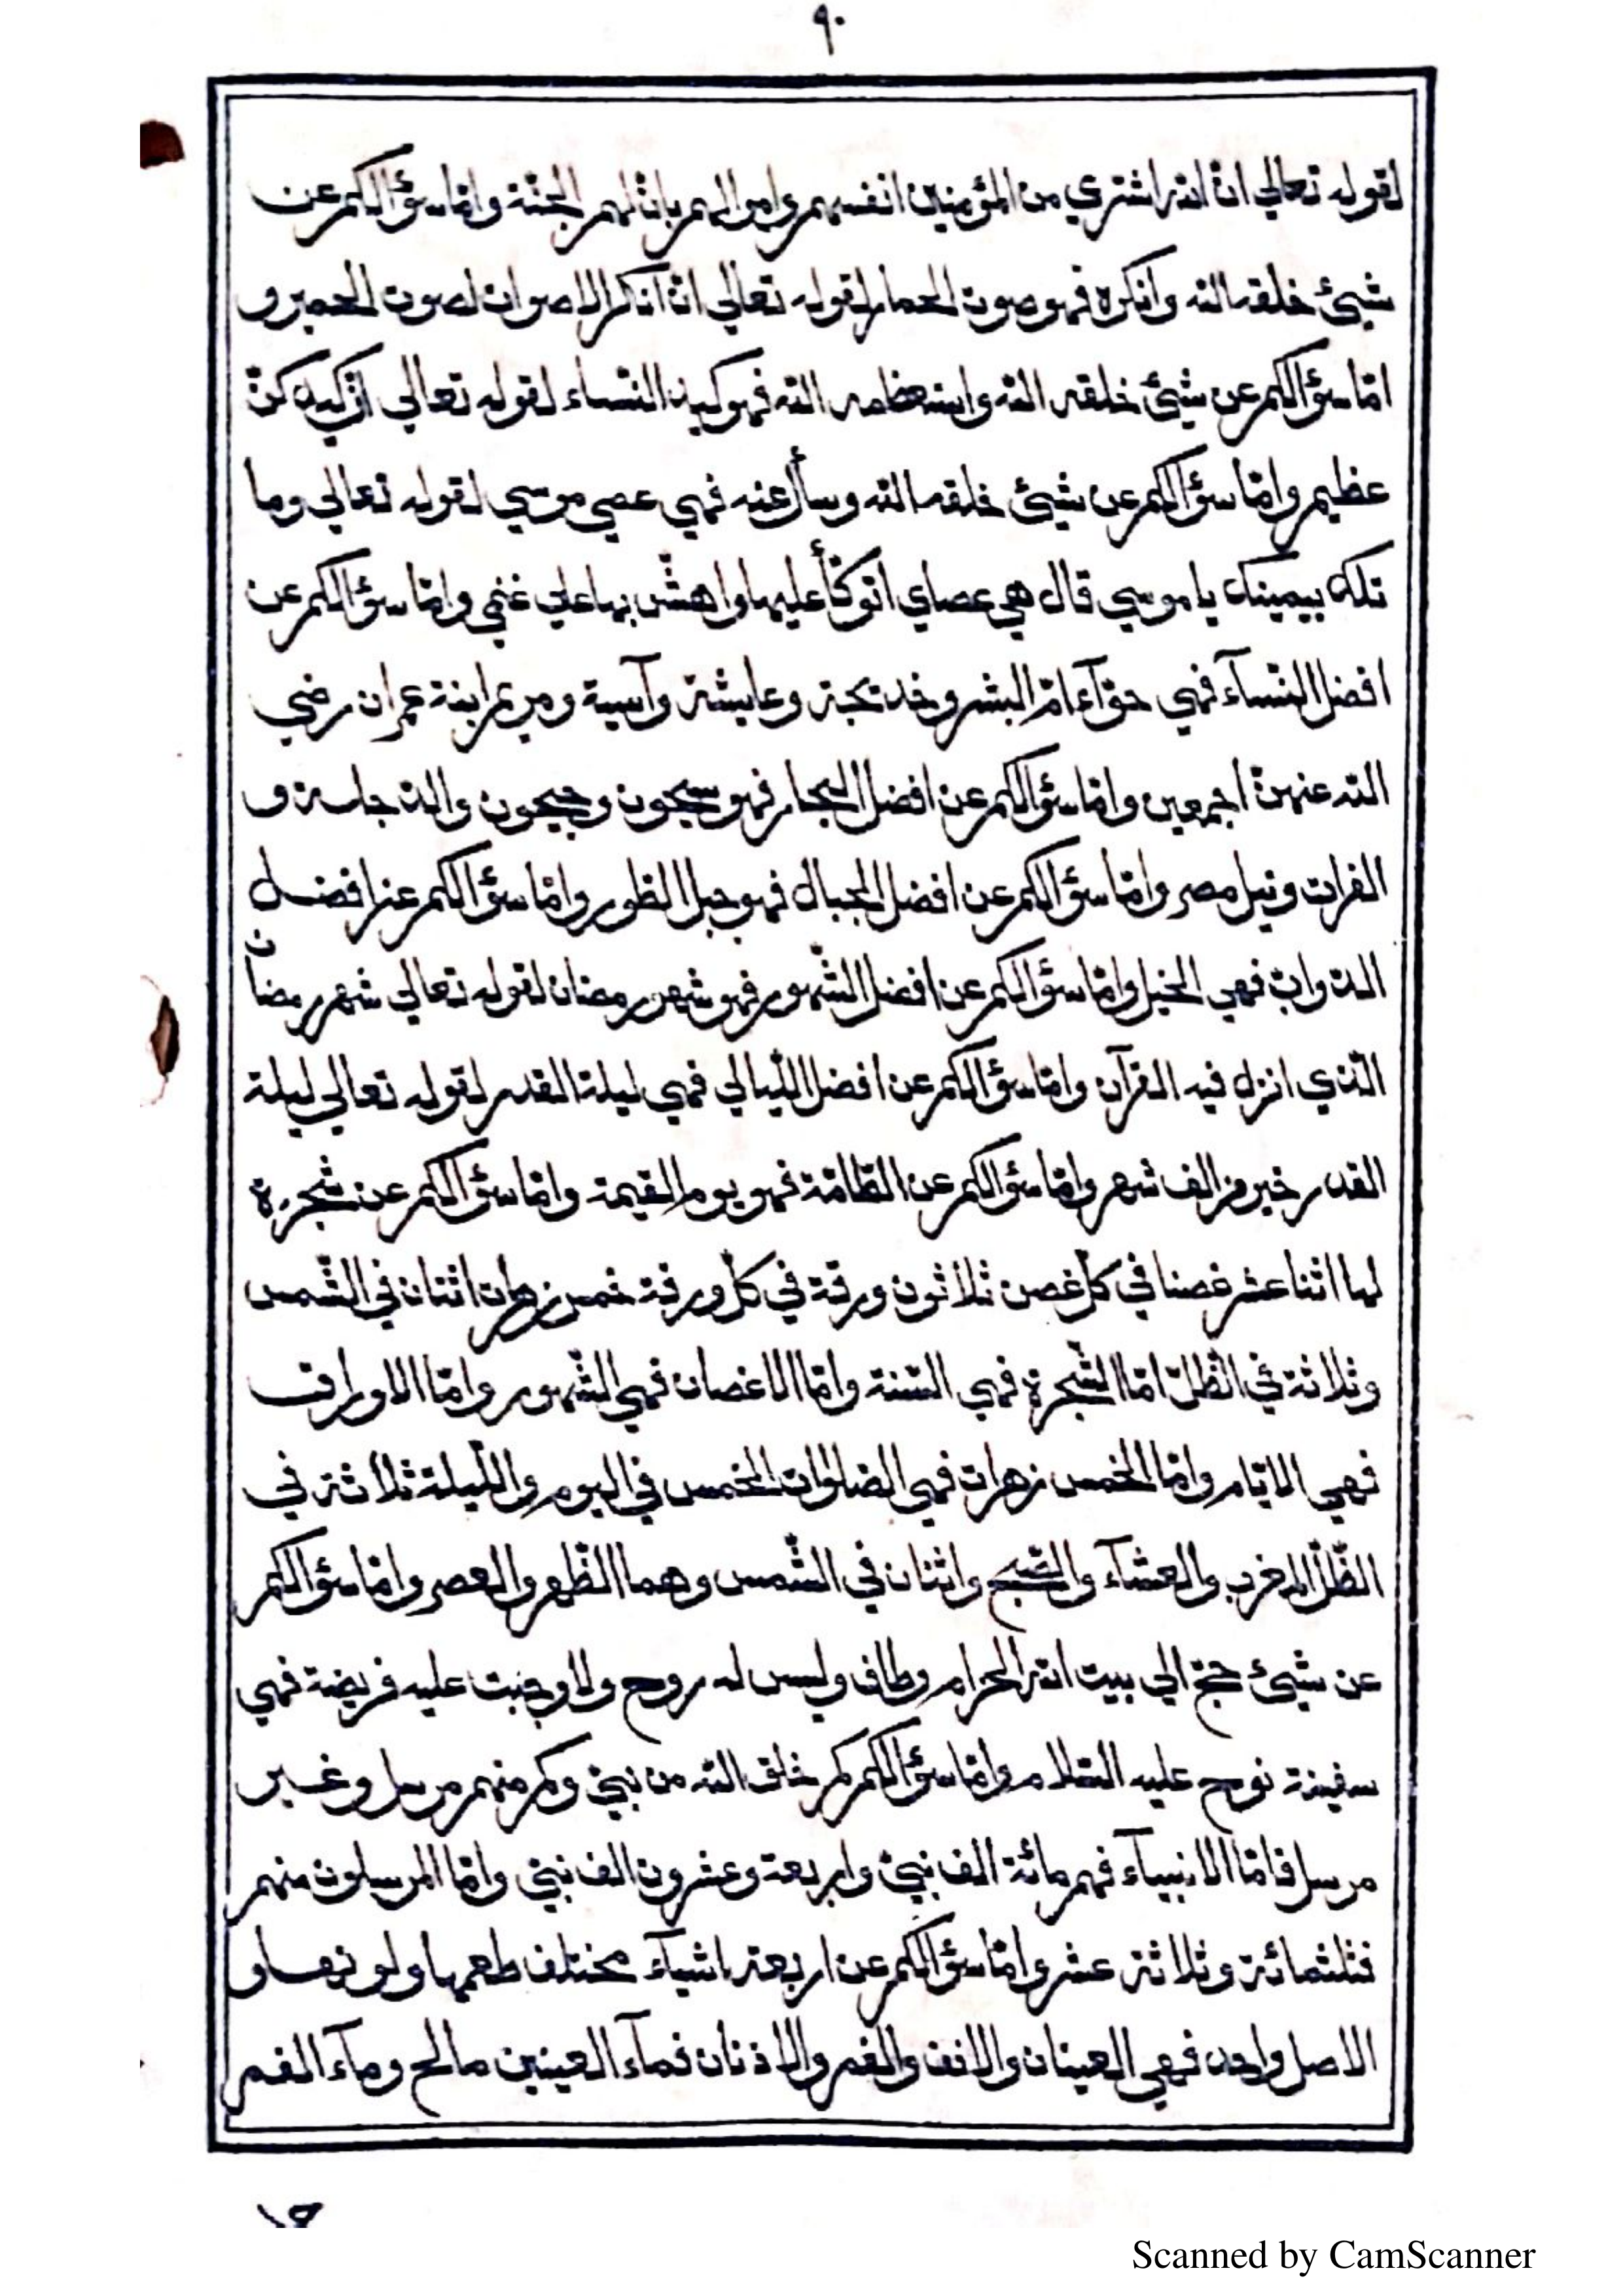 ٩٠
لقوله تعالي ان الله اشتري من المؤمنين انفسهم واموالهم بان لهم الجنّة وامّا سؤالكم عن
شيئ خلقه الله وانكره فهو صوت الحمار لقوله تعالي انّ انكر الاصوات لصوت الحمير و
امّا سؤالكم عن شيئ خلقه الله واستعظمه الله فهو كيد النّساء لقوله تعالي انّ كيدكنّ
عظيم وامّا سؤالكم عن شيئ خلقه الله وسأل عنه فهي عصي موسي لقوله تعالي وما
تلك بيمينك يا موسي قال هي عصاي اتوكّأ عليها واهشّ بها علي غنمي وامّا سؤالكم عن
افضل النّسآء فهي حوّآء امّ البشر وخديجة وعايشة وآسية ومريم ابنة عمران رضي
الله عنهنّ اجمعين وامّا سؤالكم عن افضل البحار فهو سيحون وجيحون والدّجلة و
الفرات ونيل مصر وامّا سؤالكم عن افضل الجبال فهو جبل الطّور وامّا سؤالكم عن افضل
الدّوابّ فهي الخيل وامّا سؤالكم عن افضل الشّهور فهو شهر رمضان لقوله تعالي شهر رمضان
الّذي انزل فيه القرآن وامّا سؤالكم عن افضل اللّيالي فهي ليلة القدر لقوله تعالي ليلة
القدر خير من الف شهر وامّا سؤالكم عن الطّامّة فهو يوم القيمة وامّا سؤالكم عن شجرة
لها اثنا عشر غصنا في كلّ غصن ثلاثون ورقة في كلّ ورقة خمس زهرات اثنان في الشّمس
وثلاثة في الظّلّ امّا الشّجرة فهي السّنة وامّا الاغصان فهي الشّهور وامّا الاوراق
فهي الايّام وامّا الخمس زهرات فهي الصّلوات الخمس في اليوم واللّيلة ثلاثة في
الظّلّ المغرب والعشآء والصّبح واثنان في الشّمس وهما الظّهر والعصر وامّا سؤالكم
عن شيئ حجّ الي بيت الله الحرام وطاف وليس له روح ولا وجبت عليه فريضة فهي
سفينة نوح عليه السّلام وامّا سؤالكم كم خلق الله من نبيّ وكم منهم مرسل وغير
مرسل فامّا الانبيآء فهم مائة الف نبيّ واربعة وعشرون الف نبيّ وامّا المرسلون منهم
فثلثمائة وثلاثة عشر وامّا سؤالكم عن اربعة اشيآء مختلف طعمها ولونها و
الاصل واحد فهي العينان والانف والفم والاذنان فمآء العينين مالح ومآء الفم
Scanned by CamScanner